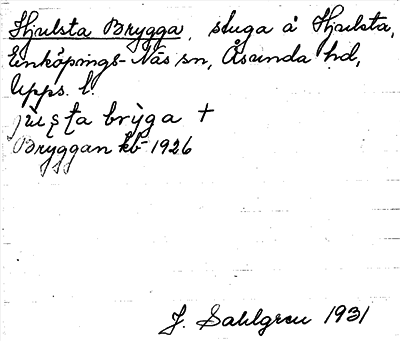 Hjulsta Brygga, stuga å Hjulsta,
Enköpings-Näs sn, Åsunda hd,
Upps. l.
brỳga +
Bryggan kb 1926
J. Sahlgren 1931